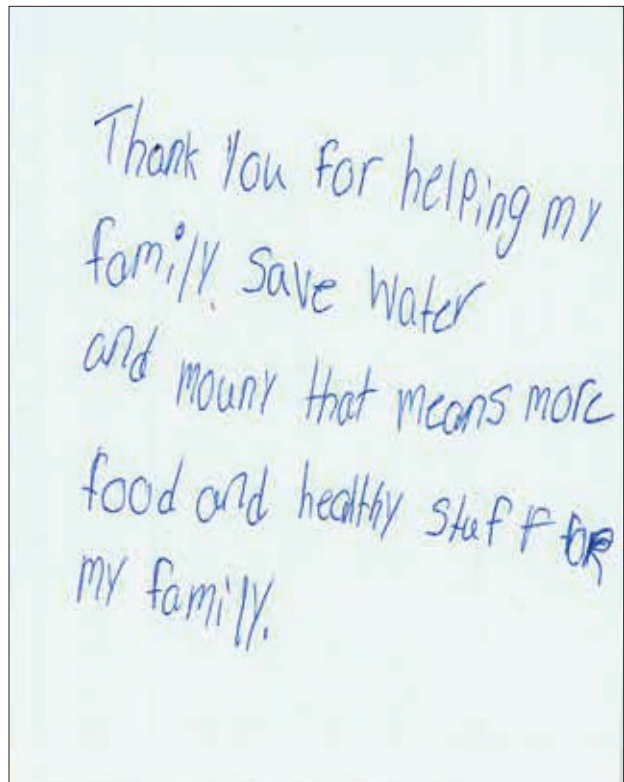 Thank you for helping my
family. save water
and mouny that means more
food and healthy stuff for
my family.